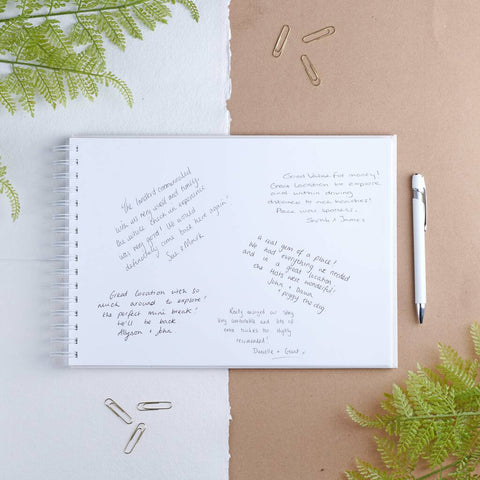 "The landlord communicated
with us very well and timely.
Our whole check in experience
was very good! We would
definately come back here again"
Sue + Mark
Good Value for money!
Great location to explore
and within driving
distance to nice beaches!
Place was spotless.
Sarah + James
a real gem of a place!
We had everything we needed
and in a great location
the Hosts were wonderful!
John + Dawn
+ piggy the dog
Great location with so
much around to explore!
the perfect mini break!
We'll be back
Allyson + John
Really enjoyed our stay
Very comfortable and lots of
extra touches too. Highly
recommended!
Danielle + Grant x